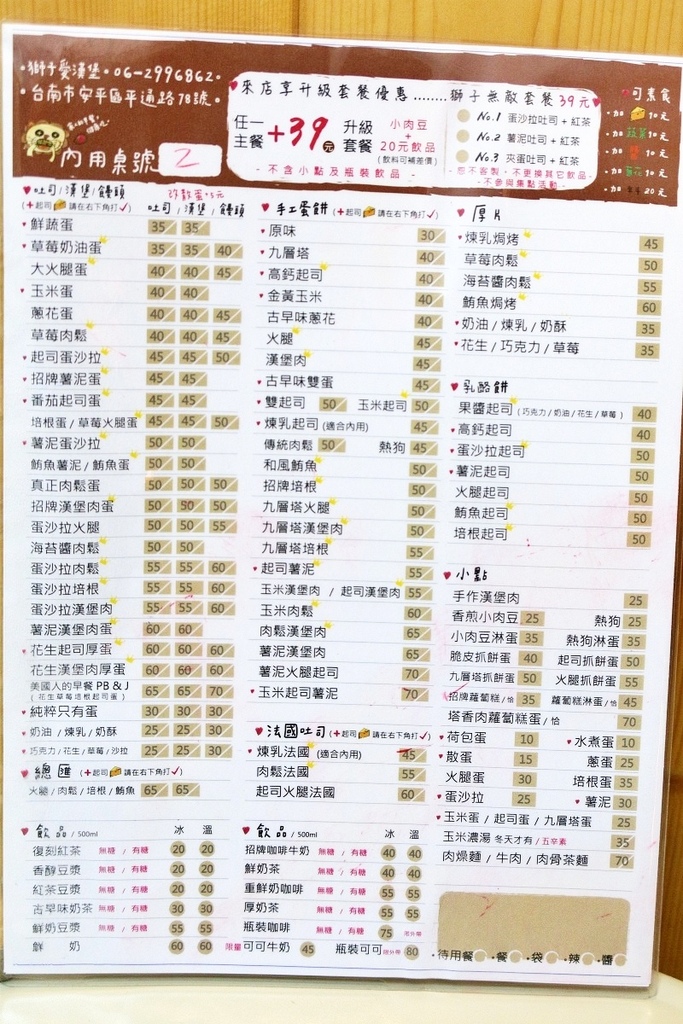 獅子愛漢堡 · 06-2996862 ·
台南市安平區平通路78號 ·
內用桌號 2
來店享升級套餐優惠 ........ 獅子無敵套餐 39元
任一主餐 +39元 升級套餐 小肉豆 + 20元飲品 (飲料可補差價)
- 不含小點及瓶裝飲品 -
No.1 蛋沙拉吐司 + 紅茶
No.2 薯泥吐司 + 紅茶
No.3 夾蛋吐司 + 紅茶
- 恕不客製, 不更換其它飲品 -
- 不參與集點活動 -
♥可素食
·加 10元
·加 蔬菜 10元
·加 10元
·加 蔥花 10元
·加 20元
♥吐司/漢堡/饅頭
(+起司 請在右下角打✓) 吐司/漢堡/饅頭
♥鮮蔬蛋 35 35
♥草莓奶油蛋 35 35 40
大火腿蛋 40 40 45
♥玉米蛋 40 40
蔥花蛋 40 40 45
草莓肉鬆 40 40 45
♥起司蛋沙拉 45 45 50
♥招牌薯泥蛋 45 45
♥番茄起司蛋 45 45
培根蛋/草莓火腿蛋 45 45 50
♥薯泥蛋沙拉 50 50
鮪魚薯泥/鮪魚蛋 50 50
真正肉鬆蛋 50 50 50
招牌漢堡肉蛋 50 50 50
蛋沙拉火腿 50 50 55
海苔醬肉鬆 50 50
蛋沙拉肉鬆 55 55 60
蛋沙拉培根 55 55 60
蛋沙拉漢堡肉 55 55 60
薯泥漢堡肉蛋 60 60
♥花生起司厚蛋 60 60 60
花生漢堡肉厚蛋 60 60 60
美國人的早餐 PB & J (花生草莓培根起司蛋) 65 65 70
♥純粹只有蛋 30 30 30
♥奶油/煉乳/奶酥 25 25 30
♥巧克力/花生/草莓/沙拉 25 25 30
♥總匯 (+起司 請在右下角打✓)
火腿/肉鬆/培根/鮪魚 65 65
♥手工蛋餅 (+起司 請在右下角打✓)
♥原味 30
♥九層塔 40
♥高鈣起司 40
♥金黃玉米 40
古早味蔥花 40
火腿 45
漢堡肉 45
♥古早味雙蛋 40
♥雙起司 50 玉米起司 50
♥煉乳起司 (適合內用) 45
傳統肉鬆 50 熱狗 45
和風鮪魚 50
招牌培根 50
九層塔火腿 50
九層塔漢堡肉 50
九層塔培根 55
♥起司薯泥 55
玉米漢堡肉 / 起司漢堡肉 55
玉米肉鬆 60
肉鬆漢堡肉 65
薯泥漢堡肉 65
薯泥火腿起司 70
♥玉米起司薯泥 70
♥法國吐司 (+起司 請在右下角打✓)
♥煉乳法國 (適合內用) 45
肉鬆法國 55
起司火腿法國 60
♥厚片
♥煉乳焗烤 45
草莓肉鬆 50
海苔醬肉鬆 55
鮪魚焗烤 60
♥奶油/煉乳/奶酥 35
♥花生/巧克力/草莓 35
♥乳酪餅
果醬起司 (巧克力/奶油/花生/草莓) 40
♥高鈣起司 40
♥蛋沙拉起司 50
♥薯泥起司 50
火腿起司 50
鮪魚起司 50
培根起司 50
♥小點
手作漢堡肉 25
香煎小肉豆 25 熱狗 25
小肉豆淋蛋 35 熱狗淋蛋 35
脆皮抓餅蛋 40 起司抓餅蛋 50
九層塔抓餅蛋 50 火腿抓餅蛋 55
招牌蘿蔔糕/恰 35 蘿蔔糕淋蛋/恰 45
塔香肉蘿蔔糕蛋/恰 70
♥荷包蛋 10 ♥水煮蛋 10
♥散蛋 15 蔥蛋 25
火腿蛋 30 培根蛋 35
♥蛋沙拉 25 ♥薯泥 30
♥玉米蛋 / 起司蛋 / 九層塔蛋 25
玉米濃湯 冬天才有/五辛素 35
肉燥麵 / 牛肉 / 肉骨茶麵 70
♥飲品 / 500ml 冰 溫
復刻紅茶 無糖 / 有糖 20 20
香醇豆漿 無糖 / 有糖 20 20
紅茶豆漿 無糖 / 有糖 20 20
古早味奶茶 無糖 / 有糖 30 30
鮮奶豆漿 無糖 / 有糖 55 55
鮮 奶 60 60
♥飲品 / 500ml 冰 溫
招牌咖啡牛奶 無糖 / 有糖 40 40
鮮奶茶 無糖 / 有糖 40 40
重鮮奶咖啡 無糖 / 有糖 55 55
厚奶茶 無糖 / 有糖 55 55
瓶裝咖啡 無糖 / 有糖 75 限外帶
限量 可可牛奶 45 瓶裝可可 限外帶 80
·待用餐 ·餐 ·袋 ·辣 ·醬